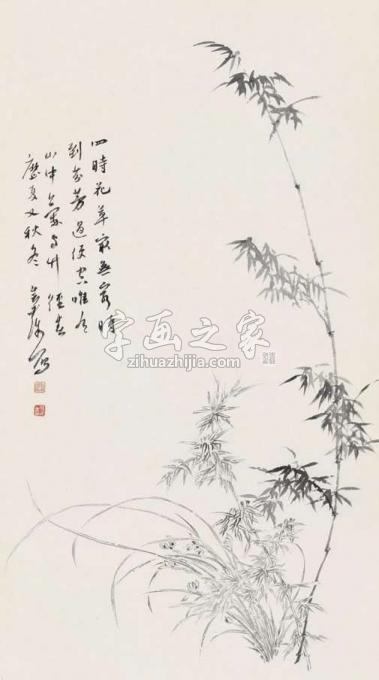 四時花草最無窮時
到芬芳過便空唯有
山中蘭与竹經春
歷夏又秋冬
寫
字画之家
zihuazhijia.com